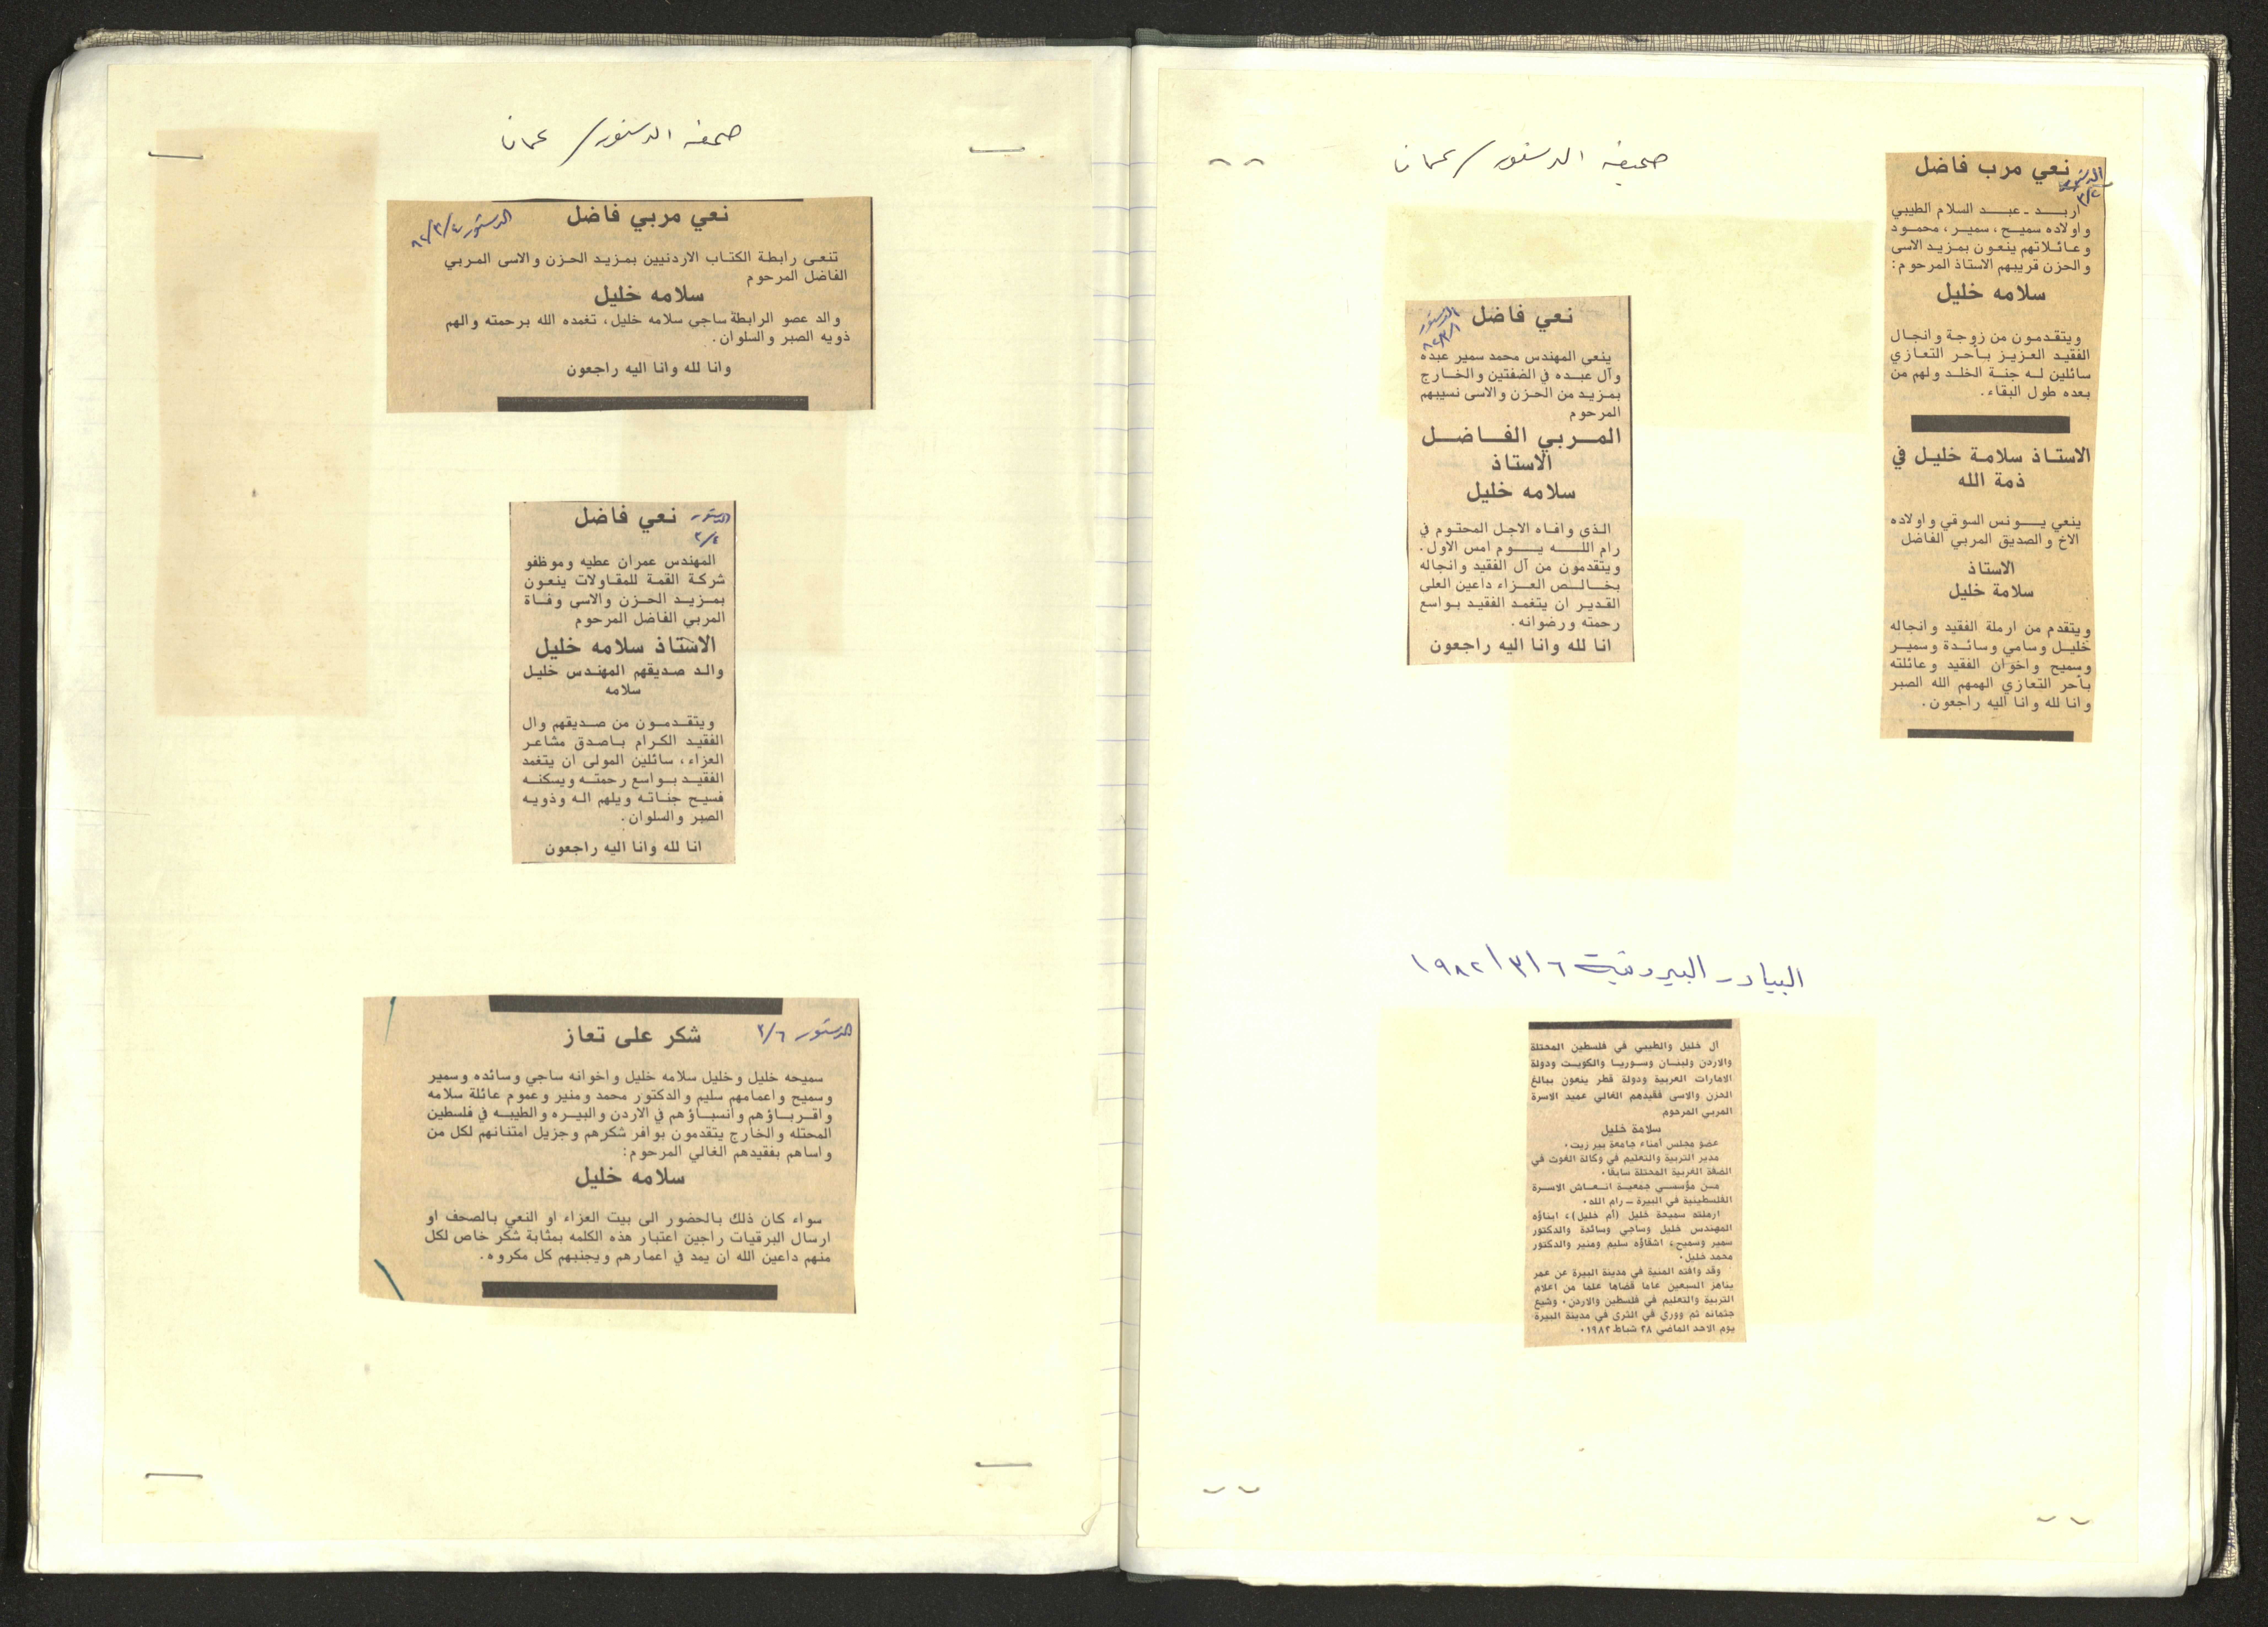 صحيفه الدستور / عمان
نعي مرب فاضل
الدستور
٣/٢
اربد - عبد السلام الطيبي
واولاده سميح، سمير، محمود
وعائلاتهم ينعون بمزيد الاسى
والحزن قريبهم الاستاذ المرحوم:
سلامه خليل
ويتقدمون من زوجة وانجال
الفقيد العزيز بأحر التعازي
سائلين له جنة الخلد ولهم من
بعده طول البقاء.
الاستاذ سلامة خليل في
ذمة الله
ينعي يونس السوقي واولاده
الاخ والصديق المربي الفاضل
الاستاذ
سلامة خليل
ويتقدم من ارملة الفقيد وانجاله
خليل وسامي وسائدة وسمير
وسميح واخوان الفقيد وعائلته
بأحر التعازي الهمهم الله الصبر
وانا لله وانا اليه راجعون.
نعي فاضل
الدستور
ينعي المهندس محمد سمير عبده
وآل عبده في الضفتين والخارج
بمزيد من الحزن والاسى نسيبهم
المرحوم
المربي الفاضل
الاستاذ
سلامه خليل
الذي وافاه الاجل المحتوم في
رام الله يوم امس الاول.
ويتقدمون من آل الفقيد وانجاله
بخالص العزاء داعين العلى
القدير ان يتغمد الفقيد بواسع
رحمته ورضوانه.
انا لله وانا اليه راجعون
البيادر البيروتية ٦/٣/١٩٨٢
آل خليل والطيبي في فلسطين المحتلة
والاردن ولبنان وسوريا والكويت ودولة
الامارات العربية ودولة قطر ينعون ببالغ
الحزن والاسى فقيدهم الغالي عميد الاسرة
المربي المرحوم
سلامة خليل
عضو مجلس أمناء جامعة بير زيت.
مدير التربية والتعليم في وكالة الغوث في
الضفة الغربية المحتلة سابقا.
من مؤسسي جمعية انعاش الاسرة
الفلسطينية في البيرة - رام الله.
ارملته سميحة خليل (أم خليل)، ابناؤه
المهندس خليل وساجي وسائدة والدكتور
سمير وسميح، اشقاؤه سليم ومنير والدكتور
محمد خليل.
وقد وافته المنية في مدينة البيرة عن عمر
يناهز السبعين عاما قضاها علما من اعلام
التربية والتعليم في فلسطين والاردن. وشيع
جثمانه ثم ووري في الثرى في مدينة البيرة
يوم الاحد الماضي ٢٨ شباط ١٩٨٢.
صحيفه الدستور / عمان
نعي مربي فاضل
الدستور ٨٢/٣/٤
تنعى رابطة الكتاب الاردنيين بمزيد الحزن والاسى المربي
الفاضل المرحوم
سلامه خليل
والد عضو الرابطة ساجي سلامه خليل، تغمده الله برحمته والهم
ذويه الصبر والسلوان.
وانا لله وانا اليه راجعون
نعي فاضل
الدستور
٣/٤
المهندس عمران عطيه وموظفو
شركة القمة للمقاولات ينعون
بمزيد الحزن والاسى وفاة
المربي الفاضل المرحوم
الاستاذ سلامه خليل
والد صديقهم المهندس خليل
سلامه
ويتقدمون من صديقهم وال
الفقيد الكرام باصدق مشاعر
العزاء، سائلين المولى ان يتغمد
الفقيد بواسع رحمته ويسكنه
فسيح جناته ويلهم اله وذويه
الصبر والسلوان.
انا لله وانا اليه راجعون
الدستور ٣/٦
شكر على تعاز
سميحه خليل وخليل سلامه خليل واخوانه ساجي وسائده وسمير
وسميح واعمامهم سليم والدكتور محمد ومنير وعموم عائلة سلامه
واقرباؤهم وأنسباؤهم في الاردن والبيره والطيبه في فلسطين
المحتله والخارج يتقدمون بوافر شكرهم وجزيل امتنانهم لكل من
واساهم بفقيدهم الغالي المرحوم:
سلامه خليل
سواء كان ذلك بالحضور الى بيت العزاء او النعي بالصحف او
ارسال البرقيات راجين اعتبار هذه الكلمه بمثابة شكر خاص لكل
منهم داعين الله ان يمد في اعمارهم ويجنبهم كل مكروه.